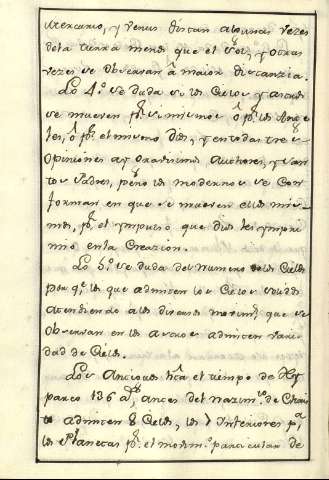 Mercurio, y Venus distan algunas vezes
dela tierra menos que el Sol, y otras
vezes se observan â maior distanzia.
Lo 4.º se duda si los Cielos y astros
se mueven p.r si mismos ô p.r los Ange
les, ô p.r el mismo Dios, y en todas tres
Opiniones ay gravisimos Authores, y San
tos Padres, pero los modernos se Con
forman en que se mueven ellos mis
mos, p.r el ympulso que Dios les ympri
mió en la Creazion.
Lo 5.º se duda del numero delos Cielos
por q.e los que admiten los Cielos solidos
atendiendo alos diversos movim.tos que se
observan en los astros admiten varie
dad de Cielos.
Los Antiguos h.ta el tiempo de Hy
parco 136 a.s antes del nazim.to de Chris
to admiten 8 Cielos, los 7 Interiores p.a
los Planetas p.r el movim.to particular de